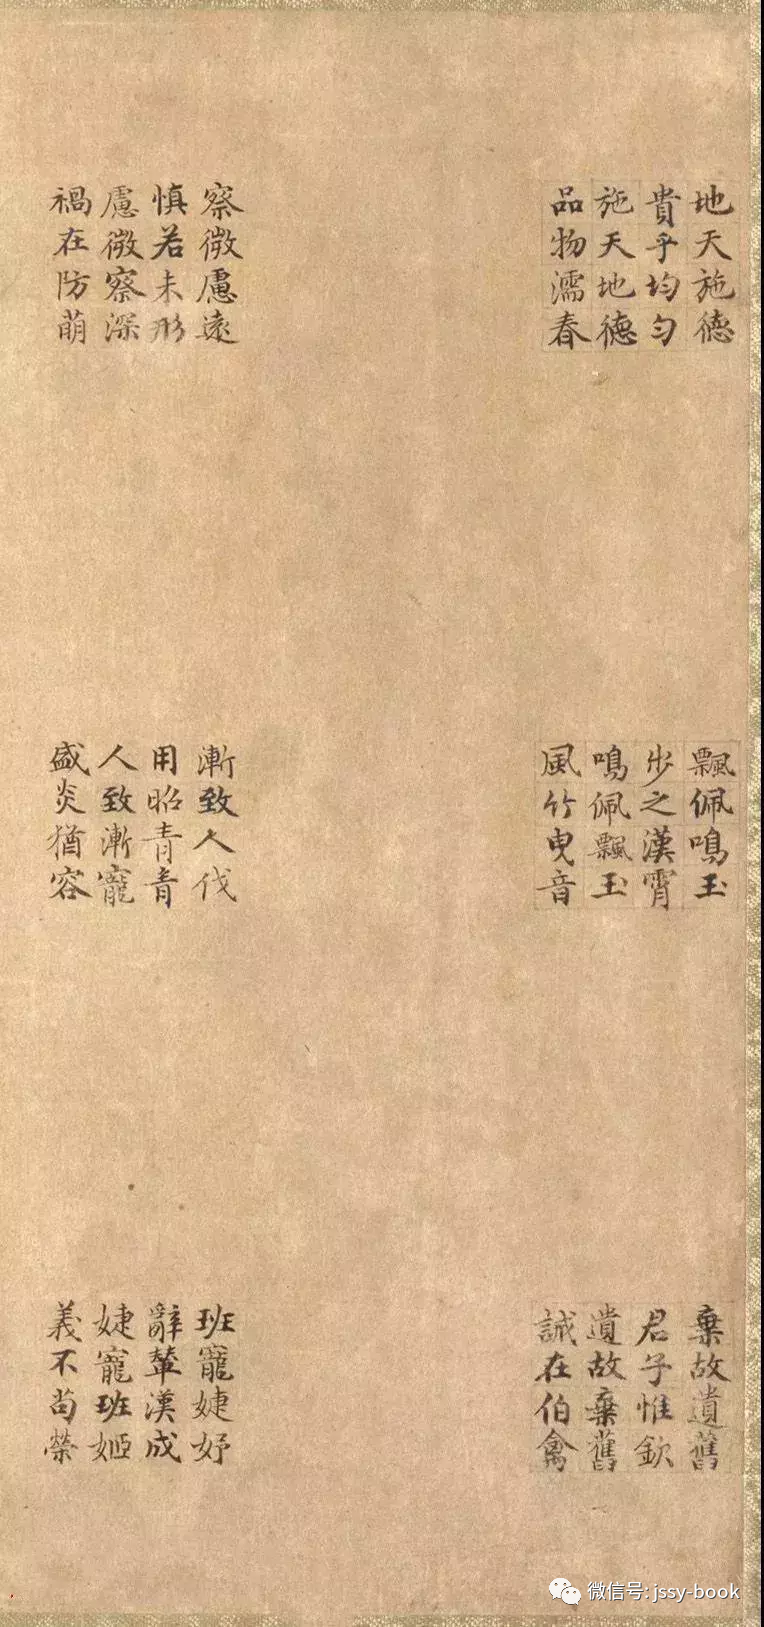 地天施德
貴乎均勻
施天地德
品物濡春
察微慮遠
慎若未形
慮微察深
禍在防萌
飄佩鳴玉
步之漢霄
鳴佩飄玉
風竹曳音
漸致人伐
用昭青青
人致漸寵
盛炎猶容
棄故遺舊
君子惟欽
遺故棄舊
誠在伯禽
班寵婕妤
辭輦漢成
婕寵班姬
義不苟榮
微信号: jssy-book